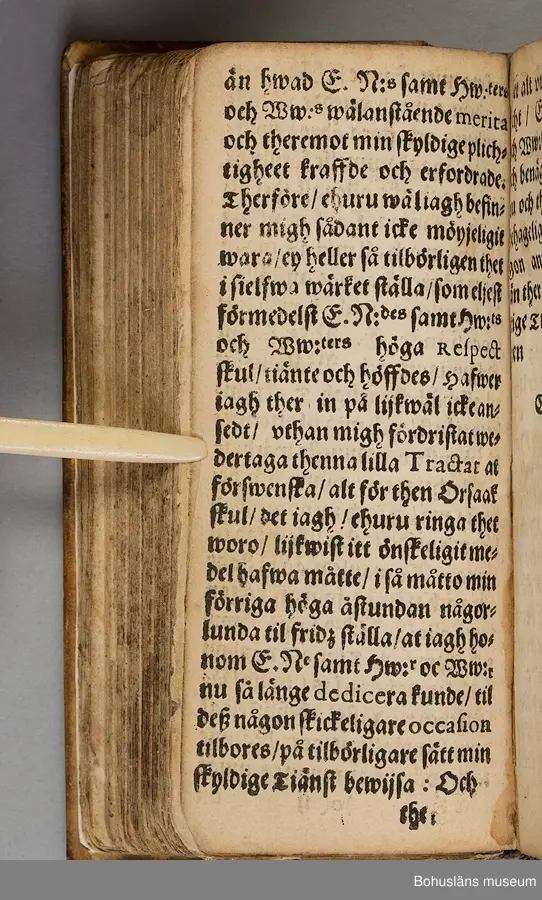 än hwad E. N:s samt Hw:ters
och Ww:s wälanstående merita
och theremot min skyldige plich-
tigheet kraffde och erfordrade.
Therföre/ ehuru wäl iagh befin-
ner migh sådant icke möyjeligit
wara/ ey heller så tilbörligen thet
i sielfwa wärket ställa/ som eljest
förmedelst E. N:des samt Hw:ts
och Ww:ters höga Respect
skul/ tiänte och höffdes/ Hafwer
iagh ther in på lijkwäl icke an-
sedt/ vthan migh fördristat we-
dertaga thenna lilla Tractat at
förswenska/ alt för then Orsaak
skul/ det iagh/ ehuru ringa thet
woro/ lijkwist itt önskeligit me-
del hafwa måtte/ i så måtto min
förriga höga åstundan någor-
lunda til fridz ställa/ at iagh ho-
nom E. Ne samt Hw:r oc Ww:r
nu så länge dedicera kunde/ til
deß någon skickeligare occasion
tilbores/ på tilbörligare sätt min
skyldige Tiänst bewijsa: Och
the
Bohusläns museum